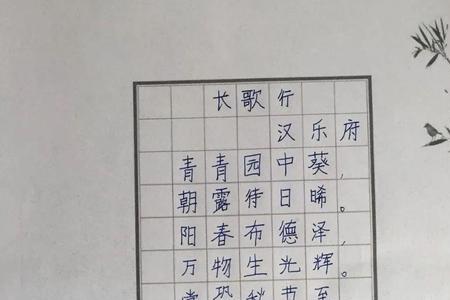 长歌行
汉乐府
青青园中葵，
朝露待日晞。
阳春布德泽，
万物生光辉。
常恐秋节至